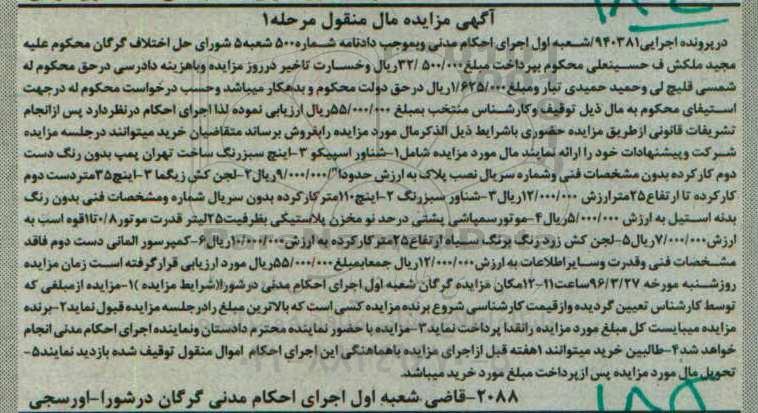 آگهی مزایده مال منقول مرحله۱
درپرونده اجرایی۹۴۰۳۸۱/شعبه اول اجرای احکام مدنی وبموجب دادنامه شماره۵۰۰ شعبه۵ شورای حل اختلاف گرگان محکوم علیه
مجید ملکش ف حسینعلی محکوم بپرداخت مبلغ۳۲/۵۰۰/۰۰۰ریال وخسارت تاخیر درروز مزایده وباهزینه دادرسی درحق محکوم له
شمسی قلیچ لی وحمید حمیدی تبار ومبلغ۱/۶۲۵/۰۰۰ریال درحق دولت محکوم و بدهکار میباشد وحسب درخواست محکوم له درجهت
استیفای محکوم به مال ذیل توقیف وکارشناس منتخب بمبلغ ۵۵/۰۰۰/۰۰۰ریال ارزیابی نموده لذا اجرای احکام درنظردارد پس ازانجام
تشریفات قانونی ازطریق مزایده حضوری باشرایط ذیل الذکرمال مورد مزایده رابفروش برساند متقاضیان خرید میتوانند درجلسه مزایده
شرکت وپیشنهادات خود را ارائه نمایند مال مورد مزایده شامل۱-شناور اسپیکو ۳-اینچ سبزرنگ ساخت تهران پمپ بدون رنگ دست
دوم کارکرده بدون مشخصات فنی وشماره سریال نصب پلاک به ارزش حدودا۹/۰۰۰/۰۰۰ریال۲-لجن کش زیگما ۳-اینچ۳۵متردست دوم
کارکرده تا ارتفاع۲۵مترارزش ۱۲/۰۰۰/۰۰۰ریال۳-شناور سبزرنگ ۲-اینچ۱۱۰متر کارکرده بدون سریال شماره ومشخصات فنی بدون رنگ
بدنه استیل به ارزش ۵/۰۰۰/۰۰۰ریال۴-موتورسمپاشی پشتی درحد نو مخزن پلاستیکی بظرفیت۲۵لیتر قدرت موتور۰/۸تا۱قوه اسب به
ارزش۷/۰۰۰/۰۰۰ریال۵-لجن کش زرد رنگ برنگ سیاه ارتفاع۲۵متر کارکرده به ارزش۱۰/۰۰۰/۰۰۰ریال۶-کمپرسور المانی دست دوم فاقد
مشخصات فنی وقدرت وسایراطلاعات به ارزش۱۲/۰۰۰/۰۰۰ریال جمعابمبلغ۵۵/۰۰۰/۰۰۰ریال مورد ارزیابی قرارگرفته است زمان مزایده
روزشنبه مورخه ۹۶/۳/۲۷ساعت۱۱-۱۲مکان مزایده گرگان شعبه اول اجرای احکام مدنی درشورا(شرایط مزایده )۱-مزایده ازمبلغی که
توسط کارشناس تعیین گردیده وازقیمت کارشناسی شروع برنده مزایده کسی است که بالاترین مبلغ رادرجلسه مزایده قبول نماید۲-برنده
مزایده میبایست کل مبلغ مورد مزایده رانقدا پرداخت نماید۳-مزایده با حضور نماینده محترم دادستان ونماینده اجرای احکام مدنی انجام
خواهد شد۴-طالبین خرید میتوانند ۱هفته قبل ازاجرای مزایده باهماهنگی این اجرای احکام اموال منقول توقیف شده بازدید نمایند۵-
تحویل مال مورد مزایده پس ازپرداخت مبلغ مورد خرید میباشد.
۲۰۸۸-قاضی شعبه اول اجرای احکام مدنی گرگان درشورا-اورسجی